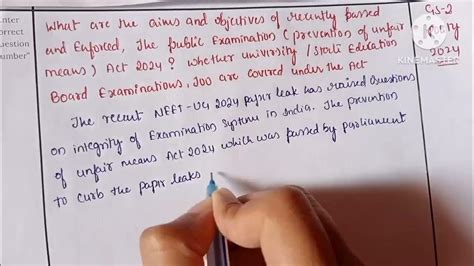 Enter
correct
question
number"
What are the aims and objectives of recently passed
and Enforced, The public Examination (prevention of unfair
means) Act 2024? whether university / State Education
Board Examinations, too are covered under the Act
GS-2
2024
KINEMASTER
The recent NEET-UG 2024 paper leak was raised Questions
on integrity of Examination system in India. The prevention
of unfair means Act 2024 which was passed by parliament
to curb the paper leaks